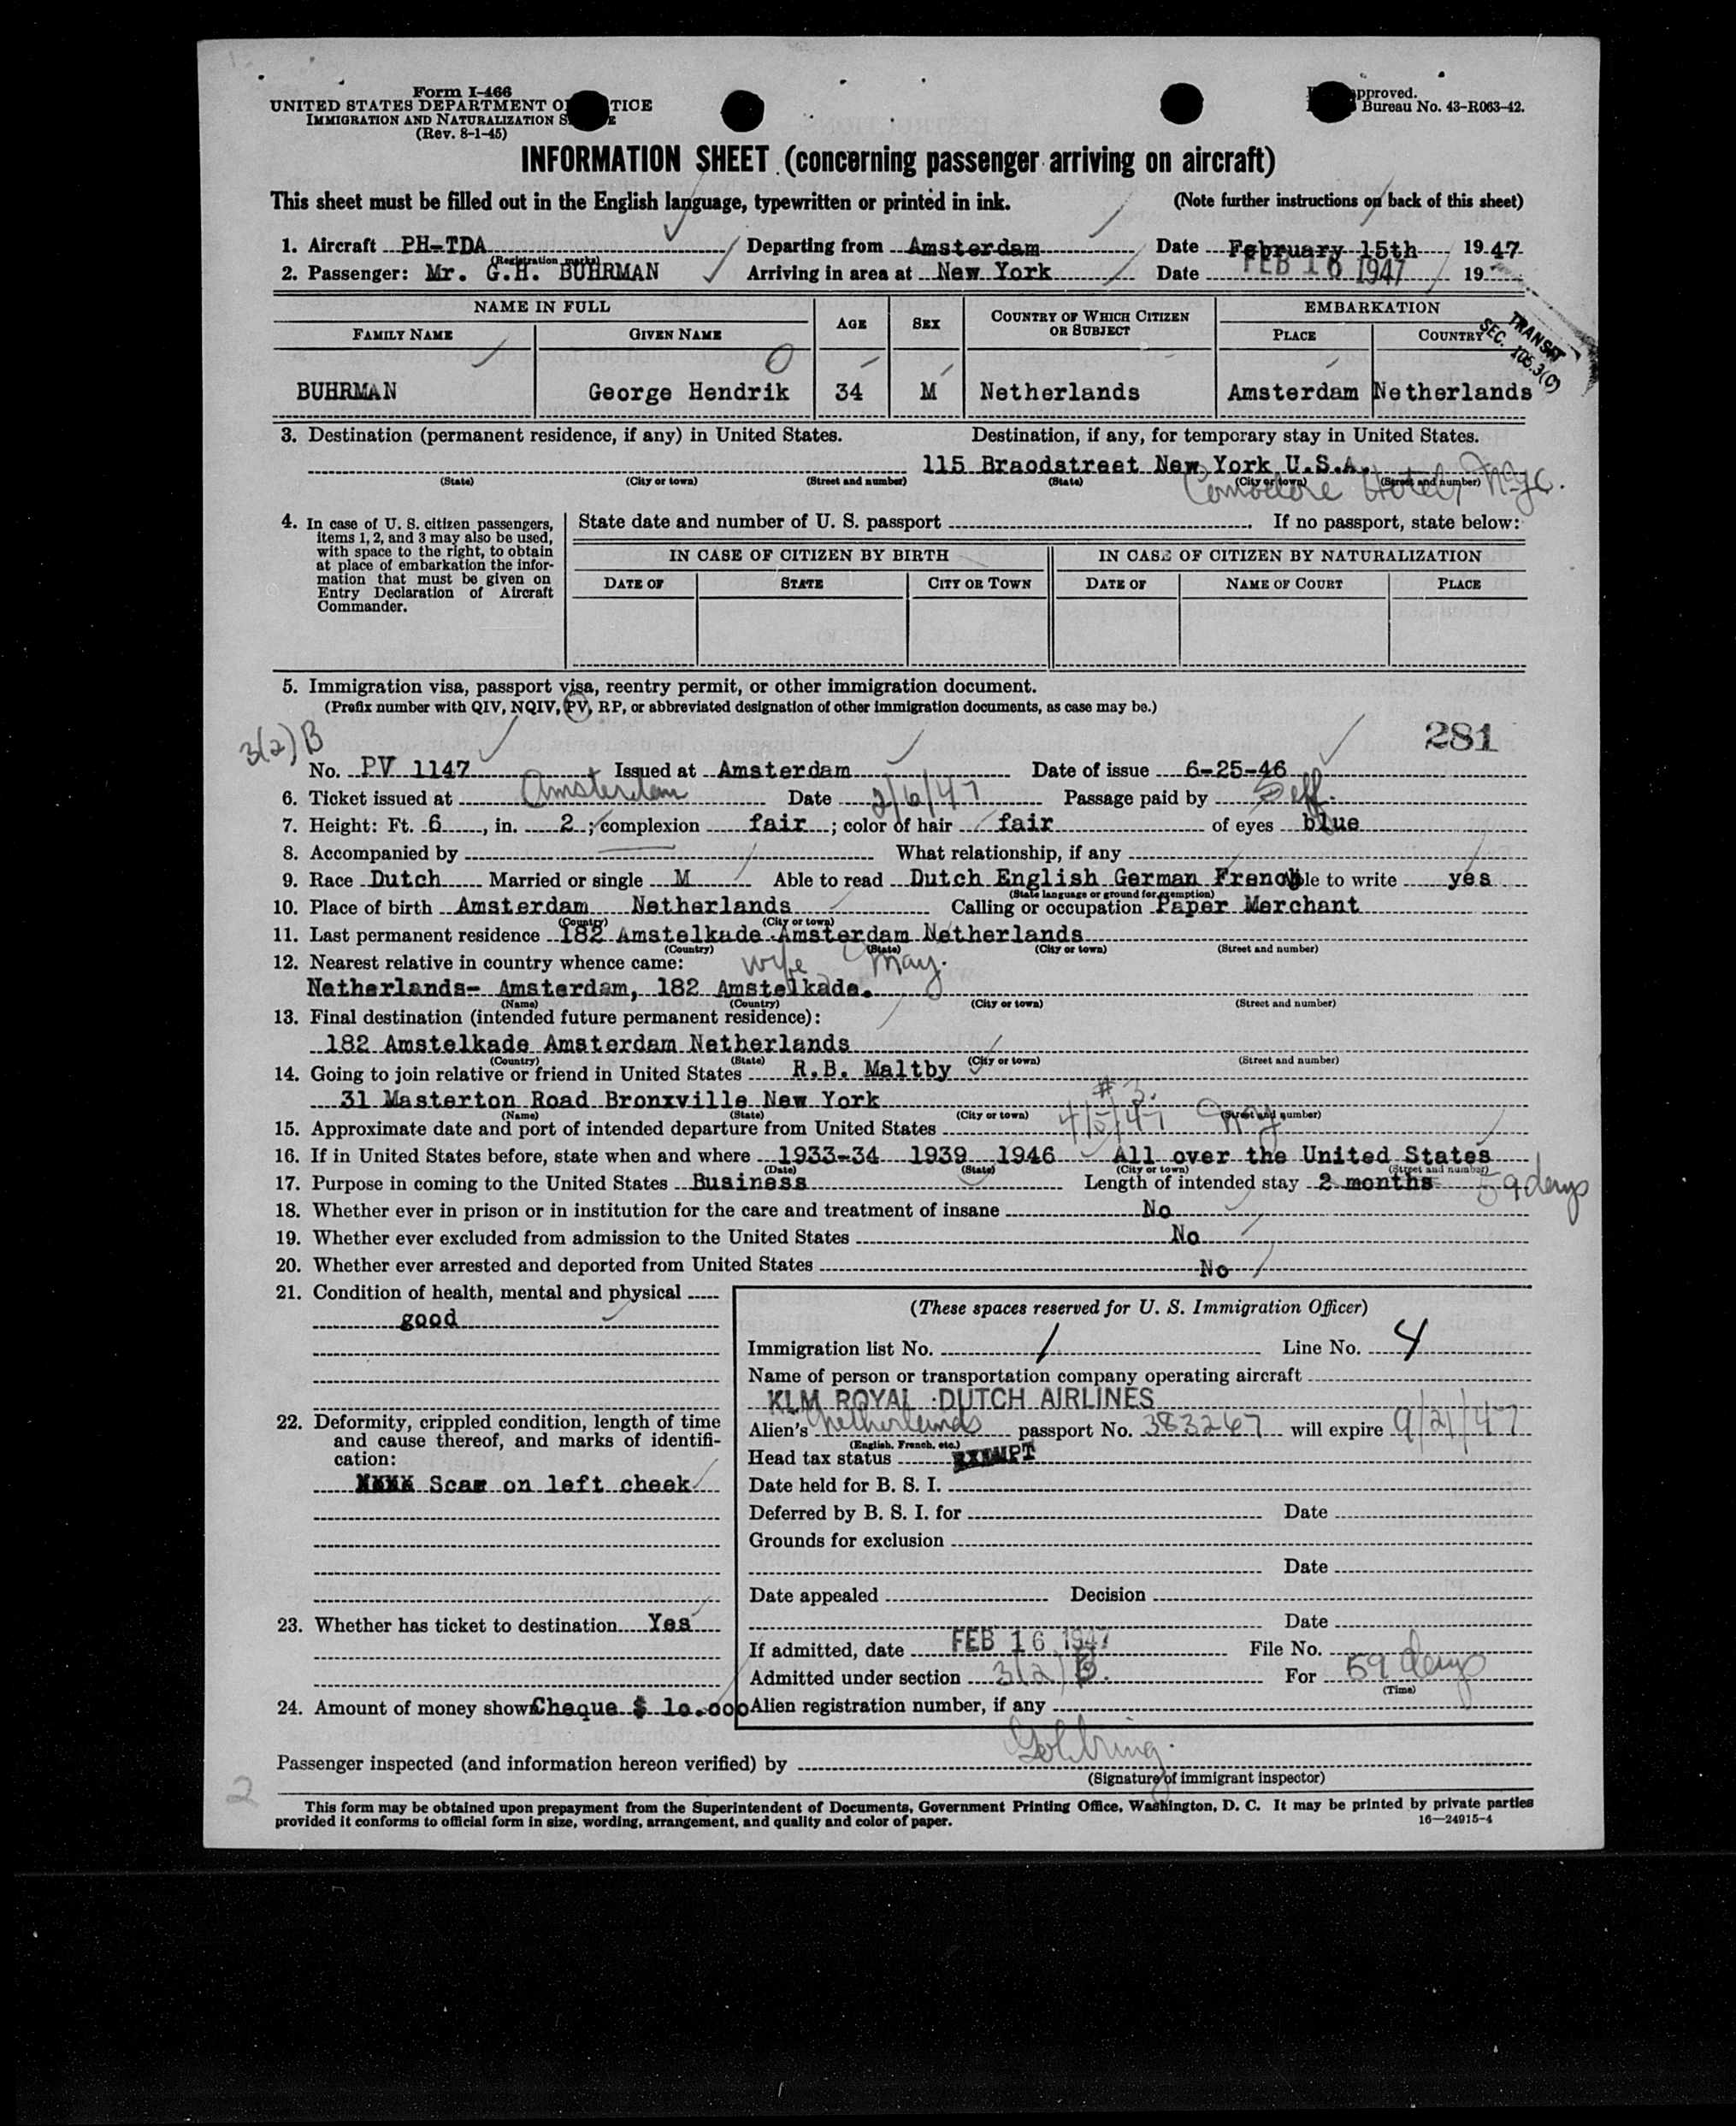 Form I-466
UNITED STATES DEPARTMENT O TICE
IMMIGRATION AND NATURALIZATION S E
(Rev. 8-1-45)
pproved.
Bureau No. 43-R063-42.
INFORMATION SHEET (concerning passenger arriving on aircraft)
This sheet must be filled out in the English language, typewritten or printed in ink. (Note further instructions on back of this sheet)
1. Aircraft PH-TDA Departing from Amsterdam Date February 15th 1947
(Registration marks)
2. Passenger: Mr. G.H. BUHRMAN Arriving in area at New York Date FEB 16 1947 19
NAME IN FULL AGE SEX COUNTRY OF WHICH CITIZEN OR SUBJECT EMBARKATION
FAMILY NAME GIVEN NAME PLACE COUNTRY
TRANSIT
SEC. 105.3(C)
BUHRMAN George Hendrik 34 M Netherlands Amsterdam Netherlands
3. Destination (permanent residence, if any) in United States. Destination, if any, for temporary stay in United States.
115 Braodstreet New York U.S.A.
(State) (City or town) (Street and number) (State) (City or town) (Street and number)
Hotel, NYC.
4. In case of U. S. citizen passengers, items 1, 2, and 3 may also be used, with space to the right, to obtain at place of embarkation the information that must be given on Entry Declaration of Aircraft Commander.
State date and number of U. S. passport . If no passport, state below:
IN CASE OF CITIZEN BY BIRTH IN CASE OF CITIZEN BY NATURALIZATION
DATE OF STATE CITY OR TOWN DATE OF NAME OF COURT PLACE
5. Immigration visa, passport visa, reentry permit, or other immigration document.
(Prefix number with QIV, NQIV, PV, RP, or abbreviated designation of other immigration documents, as case may be.)
3(2)B 281
No. PV 1147 Issued at Amsterdam Date of issue 6-25-46
6. Ticket issued at Amsterdam Date 2/6/47 Passage paid by Self.
7. Height: Ft. 6, in. 2; complexion fair; color of hair fair of eyes blue
8. Accompanied by What relationship, if any
9. Race Dutch Married or single M Able to read Dutch English German French Able to write yes
(State language or ground for exemption)
10. Place of birth Amsterdam Netherlands Calling or occupation Paper Merchant
(Country) (City or town)
11. Last permanent residence 182 Amstelkade Amsterdam Netherlands
(Country) (State) (City or town) (Street and number)
12. Nearest relative in country whence came: wife May.
Netherlands- Amsterdam, 182 Amstelkade.
(Name) (Country) (City or town) (Street and number)
13. Final destination (intended future permanent residence):
182 Amstelkade Amsterdam Netherlands
(Country) (State) (City or town) (Street and number)
14. Going to join relative or friend in United States R.B. Maltby
31 Masterton Road Bronxville New York # 3.
(Name) (State) (City or town) (Street and number)
15. Approximate date and port of intended departure from United States 4/5/47 NY
16. If in United States before, state when and where 1933-34 1939 1946 All over the United States
(Date) (State) (City or town) (Street and number)
17. Purpose in coming to the United States Business Length of intended stay 2 months 59 days
18. Whether ever in prison or in institution for the care and treatment of insane No
19. Whether ever excluded from admission to the United States No
20. Whether ever arrested and deported from United States No
21. Condition of health, mental and physical
good
22. Deformity, crippled condition, length of time and cause thereof, and marks of identification:
Scar on left cheek
23. Whether has ticket to destination Yes
24. Amount of money shown Cheque $ 10.000
(These spaces reserved for U. S. Immigration Officer)
Immigration list No. 1 Line No. 4
Name of person or transportation company operating aircraft
KLM ROYAL DUTCH AIRLINES
Alien's Netherlands passport No. 383267 will expire 9/21/47
(English, French, etc.)
Head tax status EXEMPT
Date held for B. S. I.
Deferred by B. S. I. for Date
Grounds for exclusion
Date
Date appealed Decision
Date
If admitted, date FEB 16 1947 File No.
Admitted under section 3(2)B. For 59 days
(Time)
Alien registration number, if any
Passenger inspected (and information hereon verified) by
(Signature of immigrant inspector)
2
This form may be obtained upon prepayment from the Superintendent of Documents, Government Printing Office, Washington, D. C. It may be printed by private parties
provided it conforms to official form in size, wording, arrangement, and quality and color of paper. 16—24915-4